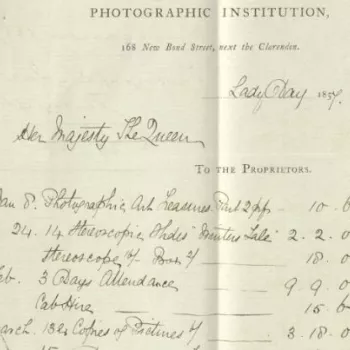 PHOTOGRAPHIC INSTITUTION,
168 New Bond Street, next the Clarendon.
Lady Day 1857.
Her Majesty The Queen
TO THE PROPRIETORS.
Jan 8. Photographic Art Treasures Part 2 pp 10. 6
24. 14 Stereoscopic Slides 'Winters Tale' 2. 2. 0
Stereoscope & Box 18. 0
Feb. 3 Days Attendance 9. 9. 0
Cab Hire 15. 6
March. Copies of Pictures 3. 18. 0